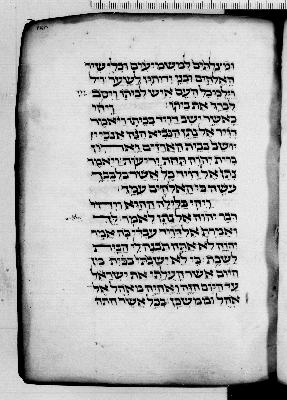 ומצלתים למשמיעים וכלי שיר
האלהים ובני ידותון לשער
וילכו כל העם איש לביתו ויסב
לברך את ביתו ויהי
כאשר ישב דויד בביתו ויאמר
דויד אל נתן הנביא הנה אנכי
יושב בבית הארזים וארון
ברית יהוה תחת יריעות ויאמר
נתן אל דויד כל אשר בלבבך
עשה כי האלהים עמך
ויהי בלילה ההוא ויהי
דבר יהוה אל נתן לאמר לך
ואמרת אל דויד עבדי כה אמר
יהוה לא אתה תבנה לי הבית
לשבת כי לא ישבתי בבית מן
היום אשר העליתי את ישראל
עד היום הזה ואהיה מאהל אל
אהל וממשכן בכל אשר התה